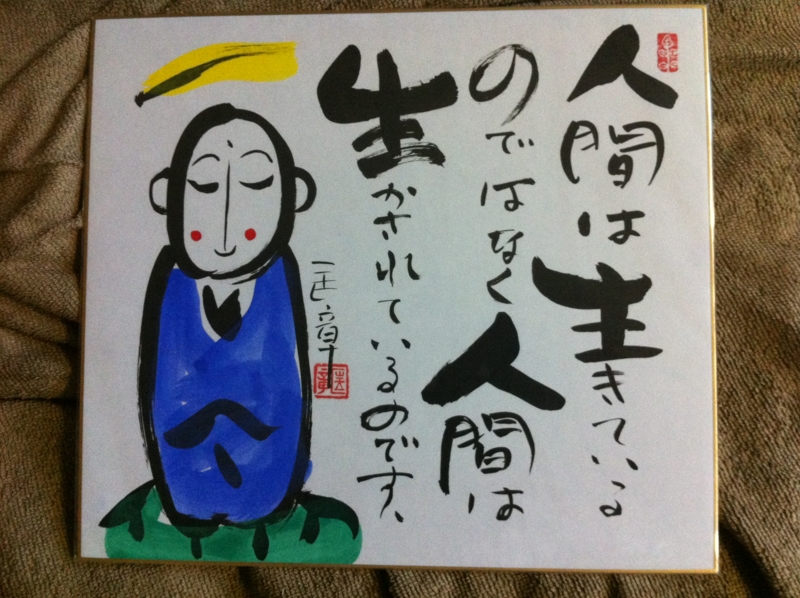 人間は生きている
のではなく人間は
生かされているのです、
匡章